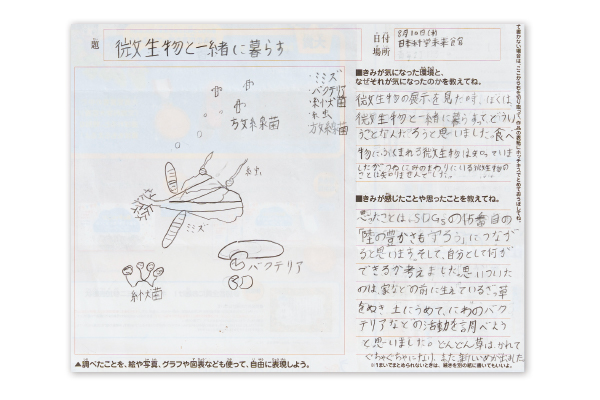 題 微生物と一緒に暮らす
日付 8月10日(木)
場所 日本科学未来館
・ミミズ
・バクテリア
・糸状菌
・線虫
放線菌
放線菌
線虫
ミミズ
バクテリア
糸状菌
▲調べたことを、絵や写真、グラフや図表なども使って、自由に表現しよう。
■きみが気になった環境と、
なぜそれが気になったのかを教えてね。
微生物の展示を見た時、ぼくは、
微生物と一緒に暮らすってどうい
うことなんだろうと思いました。食べ
物にふくまれる微生物は知っていま
したがつちにみのまわりにいる微生物の
ことは知りませんでした。
■きみが感じたことや思ったことを教えてね。
思ったことは、SDGsの15番目の
「陸の豊かさも守ろう」につなが
ると思いまう。そして、自分として何が
できるか考えました。思いついた
のは、家などの前に生えているざっ草
をぬき、土にうめて、にわのバク
テリアなどの活動を調べよう
と思いました。どんどん草は、かれて
ぐちゃぐちゃになり、また、新しいめが出れた
※1まいでまとめられないときは、続きを別の紙に書いてもいいよ。